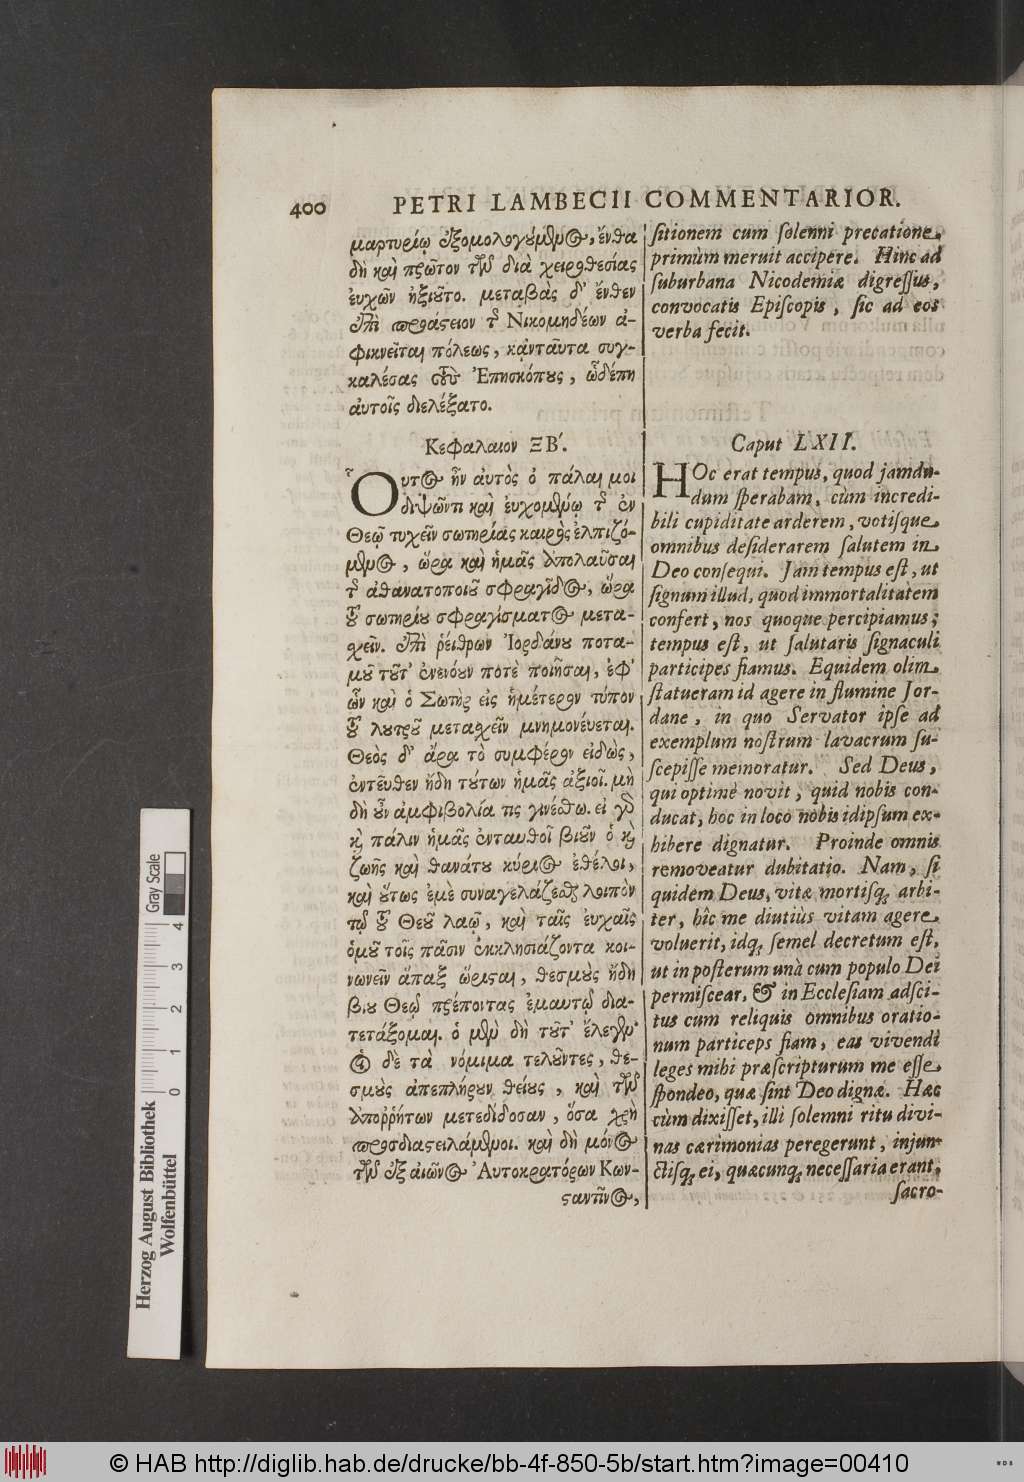 400 PETRI LAMBECII COMMENTARIOR.
μαρτυρίῳ ἐξομολογούμενος, ἔνθα
δὴ καὶ πρῶτον τῶν διὰ χειροθεσίας
εὐχῶν ἠξιοῦτο. μεταβὰς δ' ἔνθεν
ἐπὶ προάστειον τῆς Νικομηδέων ἀ-
φικνεῖται πόλεως, κᾀνταῦτα συγ-
καλέσας τοὺς Ἐπησκόπους, ὧδέπη
αὐτοῖς διελέξατο.
Κεφαλαιον ΞΒ'.
Οὗτος ἦν αὐτὸς ὁ πάλαι μοι
διψῶντι καὶ εὐχομένῳ τῆς ἐν
Θεῷ τυχεῖν σωτηρίας καιρὸς ἐλπιζό-
μενος, ὥρα καὶ ἡμᾶς ἀπολαῦσαι
τῆς ἀθανατοποιοῦ σφραγῖδος, ὥρα
τοῦ σωτηρίου σφραγίσματος μετα-
χεῖν. ἐπὶ ῥείθρων Ἰορδάνου ποτα-
μοῦ τοῦτ' ἐνενόουν ποτὲ ποιῆσαι, ἐφ'
ὧν καὶ ὁ Σωτὴρ εἰς ἡμέτερον τύπον
τοῦ λουτροῦ μεταχεῖν μνημονέυεται.
Θεὸς δ' ἄρα τὸ συμφέρον εἰδὼς,
ἐντεῦθεν ἤδη τούτων ἡμᾶς ἀξιοῖ. μὴ
δὴ οὖν ἀμφιβολία τις γινέσθω. εἰ γὰρ
καὶ πάλιν ἡμᾶς ἐνταυθοῖ βιοῦν ὁ καὶ
ζωῆς καὶ θανάτου κύριος ἐθέλοι,
καὶ οὕτως ἐμὲ συναγελάζεσθαι λοιπὸν
τῷ τοῦ Θεοῦ λαῷ, καὶ ταῖς ἐυχαῖς
ὁμοῦ τοῖς πᾶσιν ἐκκλησιάζοντα κοι-
νωνεῖν ἅπαξ ὥρισαι, θεσμοὺς ἤδη
βίου Θεῷ πρέποντας ἐμαυτῷ δια-
τετάξομαι. ὁ μὲν δὴ ταῦτ' ἔλεγεν·
οἱ δὲ τὰ νόμιμα τελοῦντες, θε-
σμοὺς ἀπεπλήρουν θείους, καὶ τῶν
ἀποῤῥήτων μετεδίδοσαν, ὅσα χρὴ
προσδιαστειλάμενοι. καὶ δὴ μόνος
τῶν ἐξ αἰῶνος Ἀυτοκρατόρων Κων-
σταντῖνος,
sitionem cum solenni precatione
primùm meruit accipere. Hinc ad
suburbana Nicodemiæ digressus,
convocatis Episcopis, sic ad eos
verba fecit.
Caput LXII.
HOc erat tempus, quod jamdu-
dum sperabam, cùm incredi-
bili cupiditate arderem, votisque
omnibus desiderarem salutem in
Deo consequi. Jam tempus est, ut
signum illud, quod immortalitatem
confert, nos quoque percipiamus;
tempus est, ut salutaris signaculi
participes fiamus. Equidem olim
statueram id agere in flumine Jor-
dane, in quo Servator ipse ad
exemplum nostrum lavacrum su-
scepisse memoratur. Sed Deus,
qui optimè novit, quid nobis con-
ducat, hoc in loco nobis idipsum ex-
hibere dignatur. Proinde omnis
removeatur dubitatio. Nam, si
quidem Deus, vitæ mortisq; arbi-
ter, hîc me diutiùs vitam agere
voluerit, idq; semel decretum est,
ut in posterum unà cum populo Dei
permiscear, & in Ecclesiam adsci-
tus cum reliquis omnibus oratio-
num particeps fiam, eas vivendi
leges mihi præscripturum me esse
spondeo, quæ sint Deo dignæ. Hæc
cùm dixisset, illi solemni ritu divi-
nas cærimonias peregerunt, injun-
ctisq; ei, quæcunq; necessaria erant,
sacro-
Herzog August Bibliothek
Wolfenbüttel
Gray Scale
0 1 2 3 4
© HAB http://diglib.hab.de/drucke/bb-4f-850-5b/start.htm?image=00410